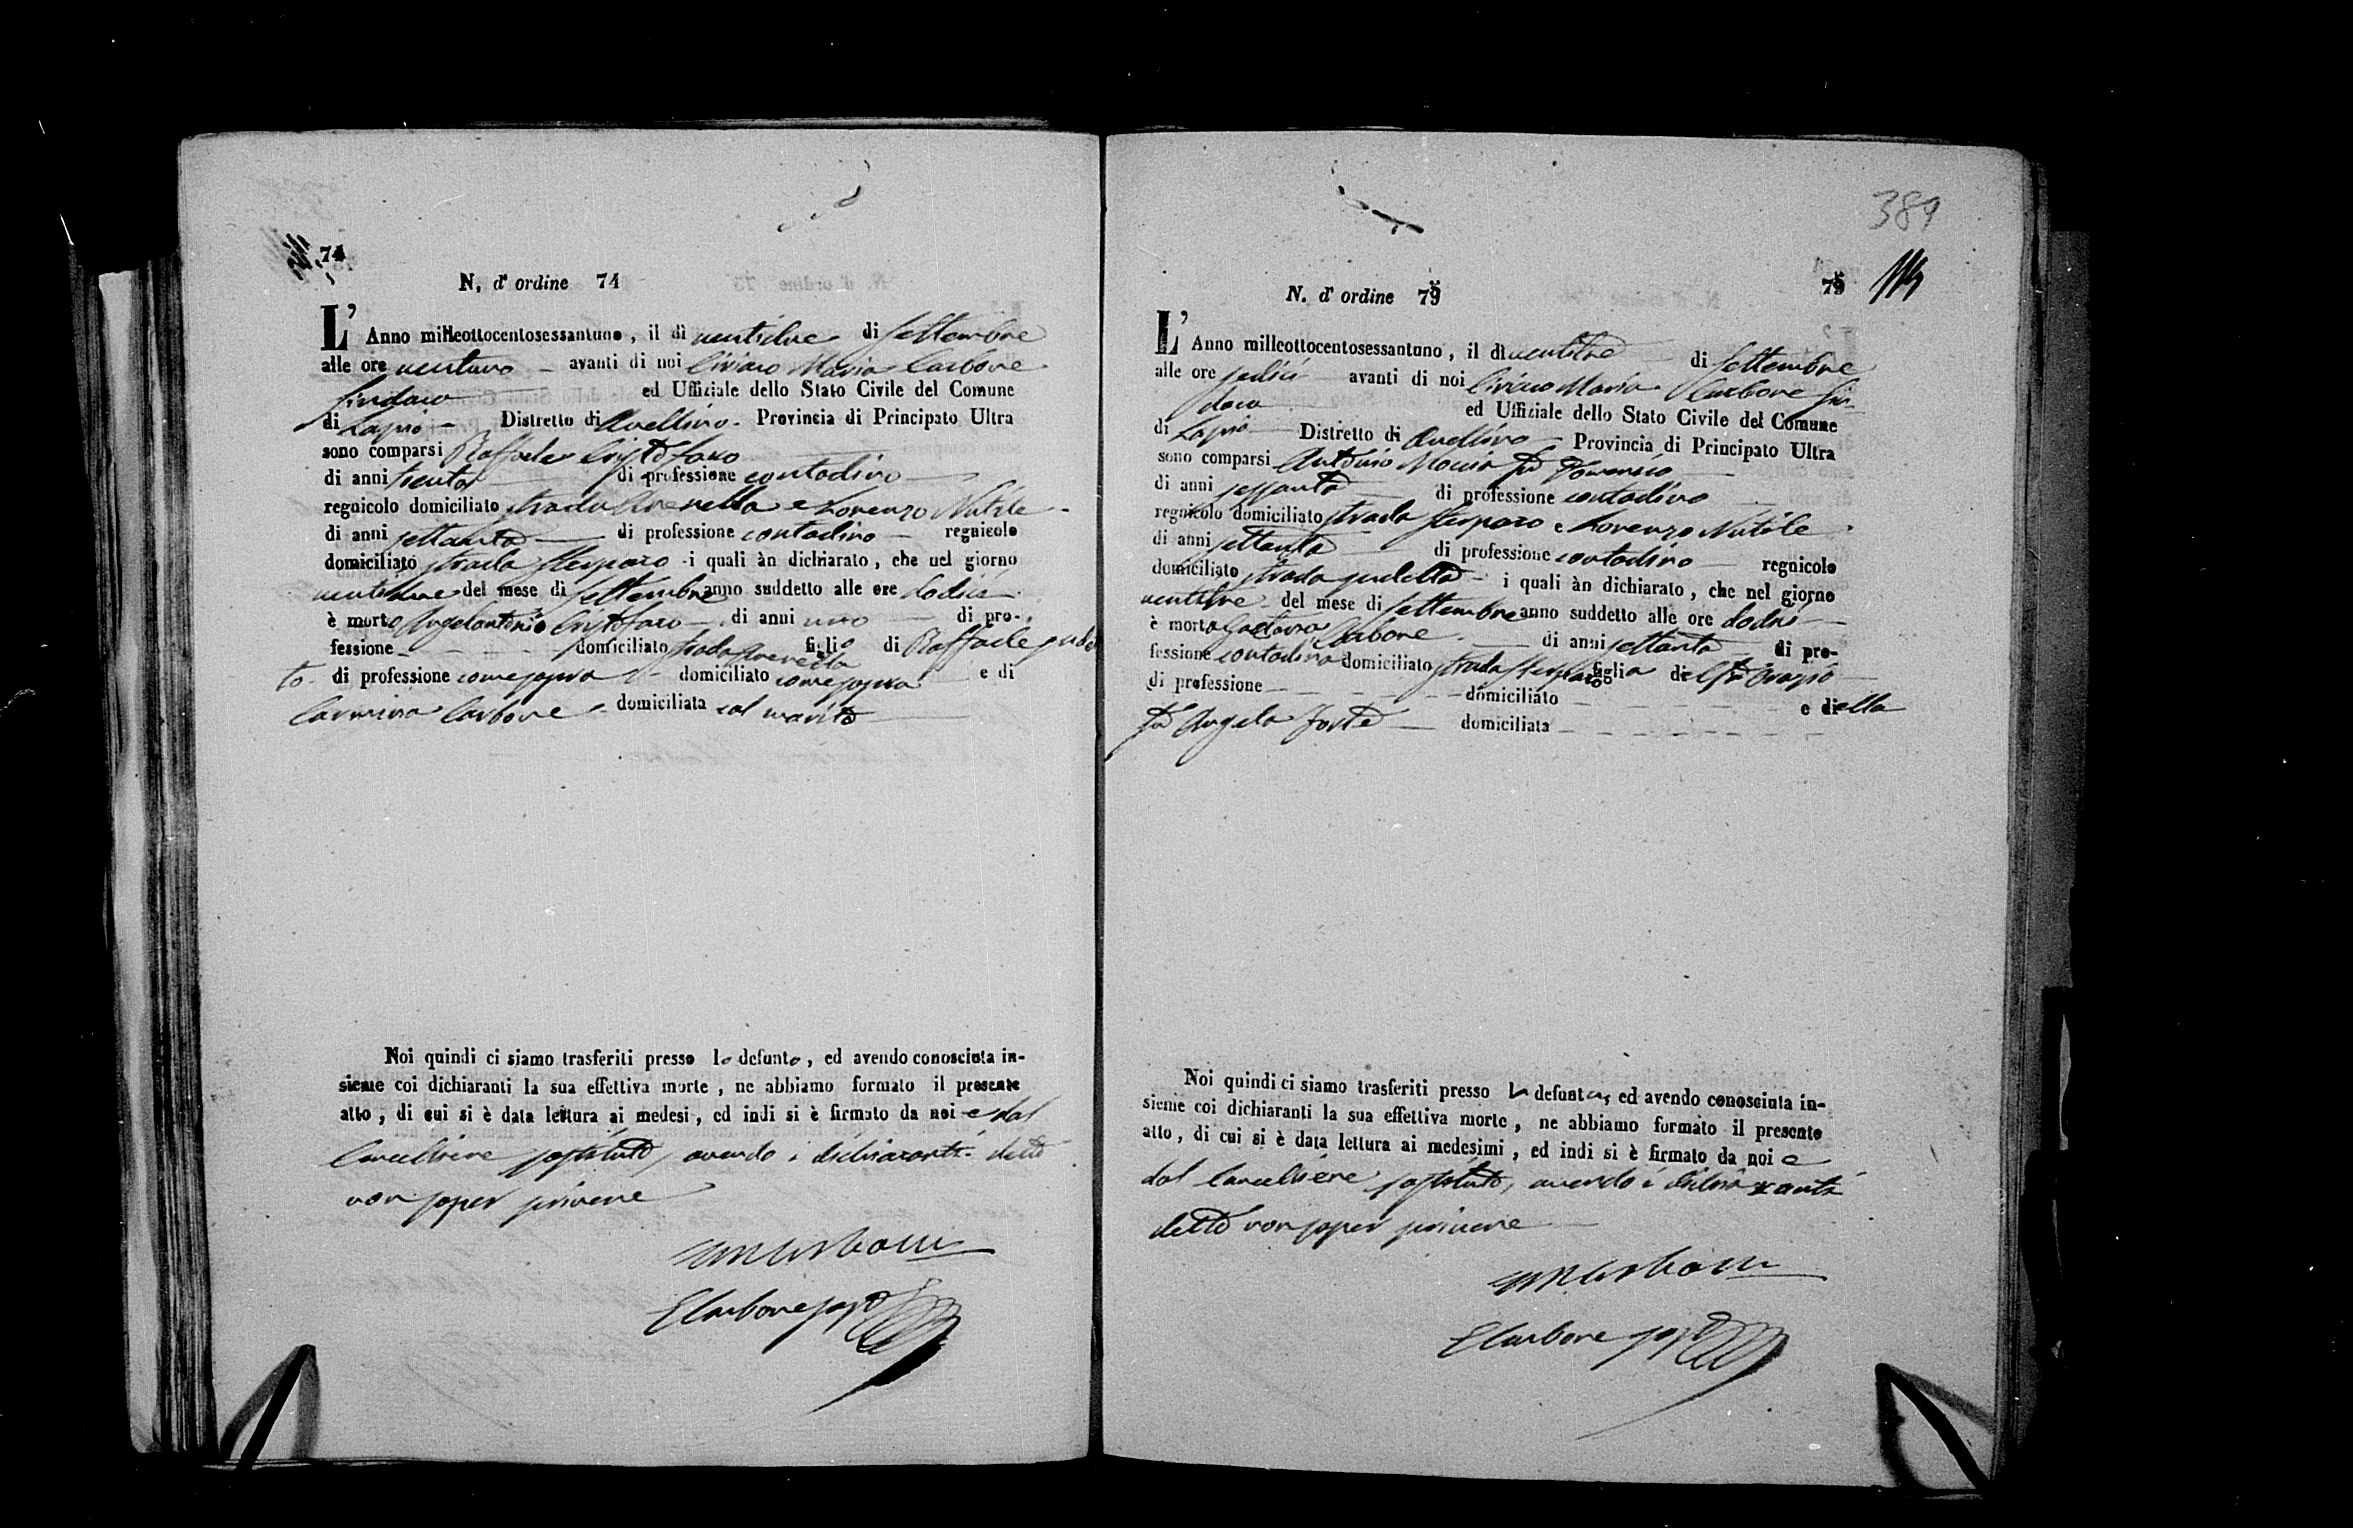 74
N. d' ordine 74
L' Anno milleottocentosessantuno, il dì ventidue di Settembre
alle ore ventuno — avanti di noi Ciriaco Maria Carbone
Sindaco ed Uffiziale dello Stato Civile del Comune
di Lapio — Distretto di Avellino - Provincia di Principato Ultra
sono comparsi Raffaele Cristofaro
di anni trenta di professione contadino
regnicolo domiciliato strada Arenella e Lorenzo Nutile -
di anni settanta — di professione contadino — regnicolo
domiciliato strada - i quali àn dichiarato, che nel giorno
ventidue del mese di Settembre anno suddetto alle ore dodici
è morto Angelantonio Cristofaro — di anni uno — di pro-
fessione - - - domiciliato strada Arenella figlio di Raffaele sudet
to - di professione come sopra - domiciliato come sopra e di
Carmina Carbone - domiciliata col marito
Noi quindi ci siamo trasferiti presso lo defunto, ed avendo conosciuta in-
sieme coi dichiaranti la sua effettiva morte, ne abbiamo formato il presente
atto, di cui si è data lettura ai medesi, ed indi si è firmato da noi e dal
Cancelliere sostituto, avendo i dichiaranti detto
non saper scrivere
CMCarbone
Carbone sosto
389
75
N. d' ordine 75
L' Anno milleottocentosessantuno, il dì ventitre di Settembre
alle ore sedici avanti di noi Ciriaco Maria Carbone Sin-
daco ed Uffiziale dello Stato Civile del Comune
di Lapio — Distretto di Avellino — Provincia di Principato Ultra
sono comparsi Antonio fu
di anni sessanta di professione contadino
regnicolo domiciliato strada e Lorenzo Nutile
di anni settanta di professione contadino — regnicolo
domiciliato strada sudetta - i quali àn dichiarato, che nel giorno
ventitre del mese di Settembre anno suddetto alle ore dodici
è morta Gaetana Carbone — di anni settanta di pro-
fessione contadina domiciliato strada figlia del fu Orazio
di professione - - - domiciliato - - - e della
fu Angela Forte — domiciliata - - -
Noi quindi ci siamo trasferiti presso la defunta, ed avendo conosciuta in-
sieme coi dichiaranti la sua effettiva morte, ne abbiamo formato il presente
atto, di cui si è data lettura ai medesimi, ed indi si è firmato da noi e
dal Cancelliere sostituto, avendo i dichiaranti
detto non saper scrivere
CMCarbone
Carbone sosto